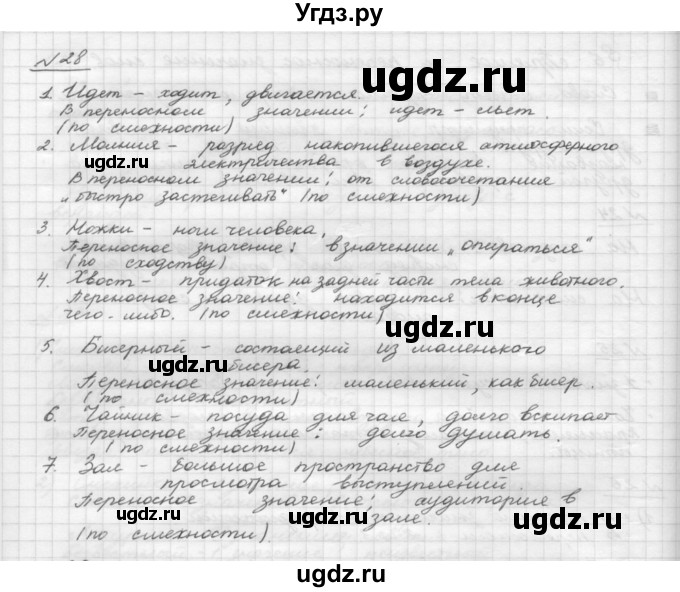 Угдз.ру
№28
1. Идет - ходит, двигается.
В переносном значении: идет - льет.
(по смежности)
2. Молния - разряд накопившегося атмосферного
электричества в воздухе.
В переносном значении: от словосочетания
„быстро застегивать" (по смежности)
3. Ножки - ноги человека.
Переносное значение: в значении „опираться"
(по сходству)
4. Хвост - придаток на задней части тела животного.
Переносное значение: находится в конце
чего-либо. (по смежности)
5. Бисерный - состоящий из маленького
бисера.
Переносное значение: маленький, как бисер.
(по смежности)
6. Чайник - посуда для чая, долго вскипает
Переносное значение: долго думать.
(по смежности)
7. Зал - большое пространство для
просмотра выступлений.
Переносное значение: аудитория в
зале.
(по смежности)
ugdz.ru
ugdz.ru
ugdz.ru
ugdz.ru
ugdz.ru
ugdz.ru
ugdz.ru
ugdz.ru
ugdz.ru
ugdz.ru
ugdz.ru
ugdz.ru